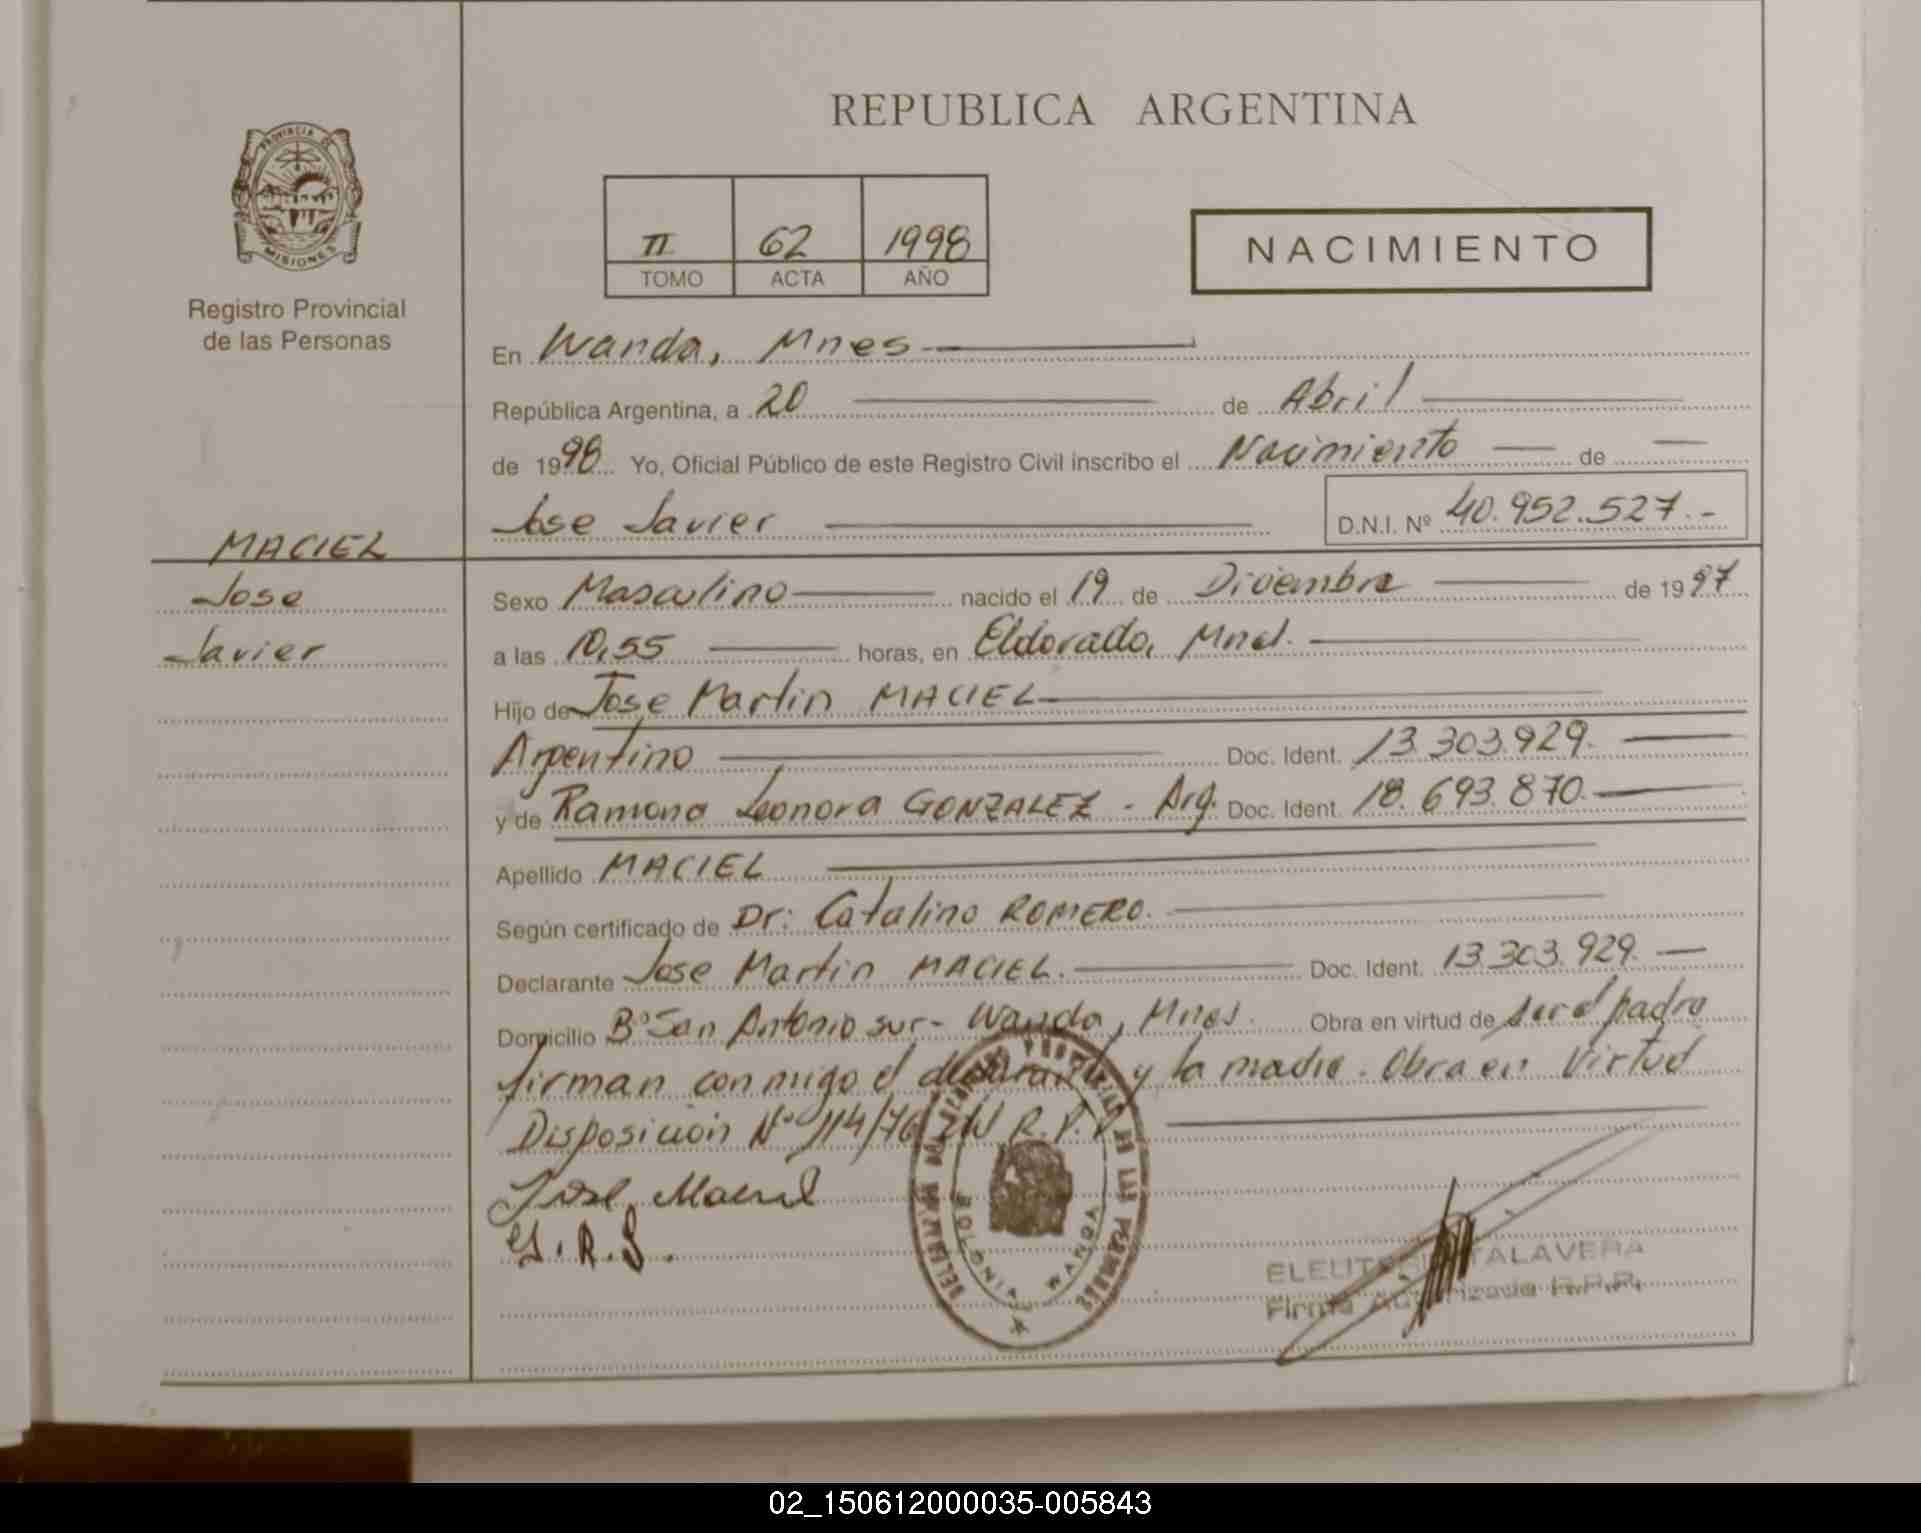 PROVINCIA DE
MISIONES
Registro Provincial
de las Personas
MACIEL
Jose
Javier
REPUBLICA ARGENTINA
II 62 1998
TOMO ACTA AÑO
NACIMIENTO
En Wanda, Mnes
República Argentina, a 20 de Abril
de 1998 Yo, Oficial Público de este Registro Civil inscribo el Nacimiento de
Jose Javier D.N.I. Nº 40.952.527.-
Sexo Masculino nacido el 19 de Diciembre de 1997
a las 10,55 horas, en Eldorado, Mnes.
Hijo de Jose Martin MACIEL
Argentino Doc. Ident. 13.303.929.
y de Ramona Leonora GONZALEZ - Arg. Doc. Ident. 18.693.870.
Apellido MACIEL
Según certificado de Dr: Catalino ROMERO.
Declarante Jose Martin MACIEL. Doc. Ident. 13.303.929.
Domicilio Bº San Antonio sur - Wanda, Mnes. Obra en virtud de ser el padre
firman conmigo el declarante y la madre. Obra en Virtud
Disposicion Nº 114/76 R.P.P.
Jose Maciel
G.R.S.
COLONIA WANDA
ELEUTERIO TALAVERA
Firma Autorizada R.P.P.
02_150612000035-005843